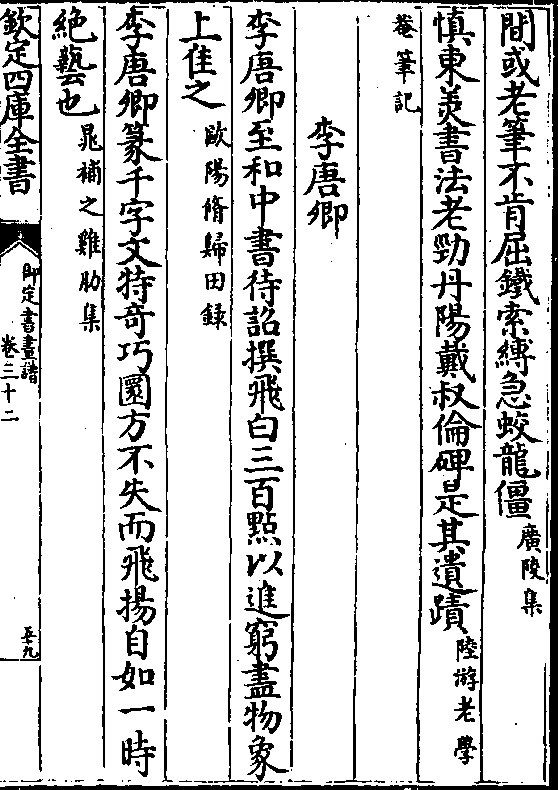 間或老筆不肯屈鐵索縛急蛟龍僵廣陵集
慎東美書法老勁丹陽戴叔倫碑是其遺蹟陸游老學
菴筆記
李唐卿
李唐卿至和中書待詔撰飛白三百點以進窮盡物象
上佳之歐陽脩歸田錄
李唐卿篆千字文特奇巧圜方不失而飛揚自如一時
絕藝也晁補之雞肋集
欽定四庫全書
御定書畫譜
卷三十二
五九